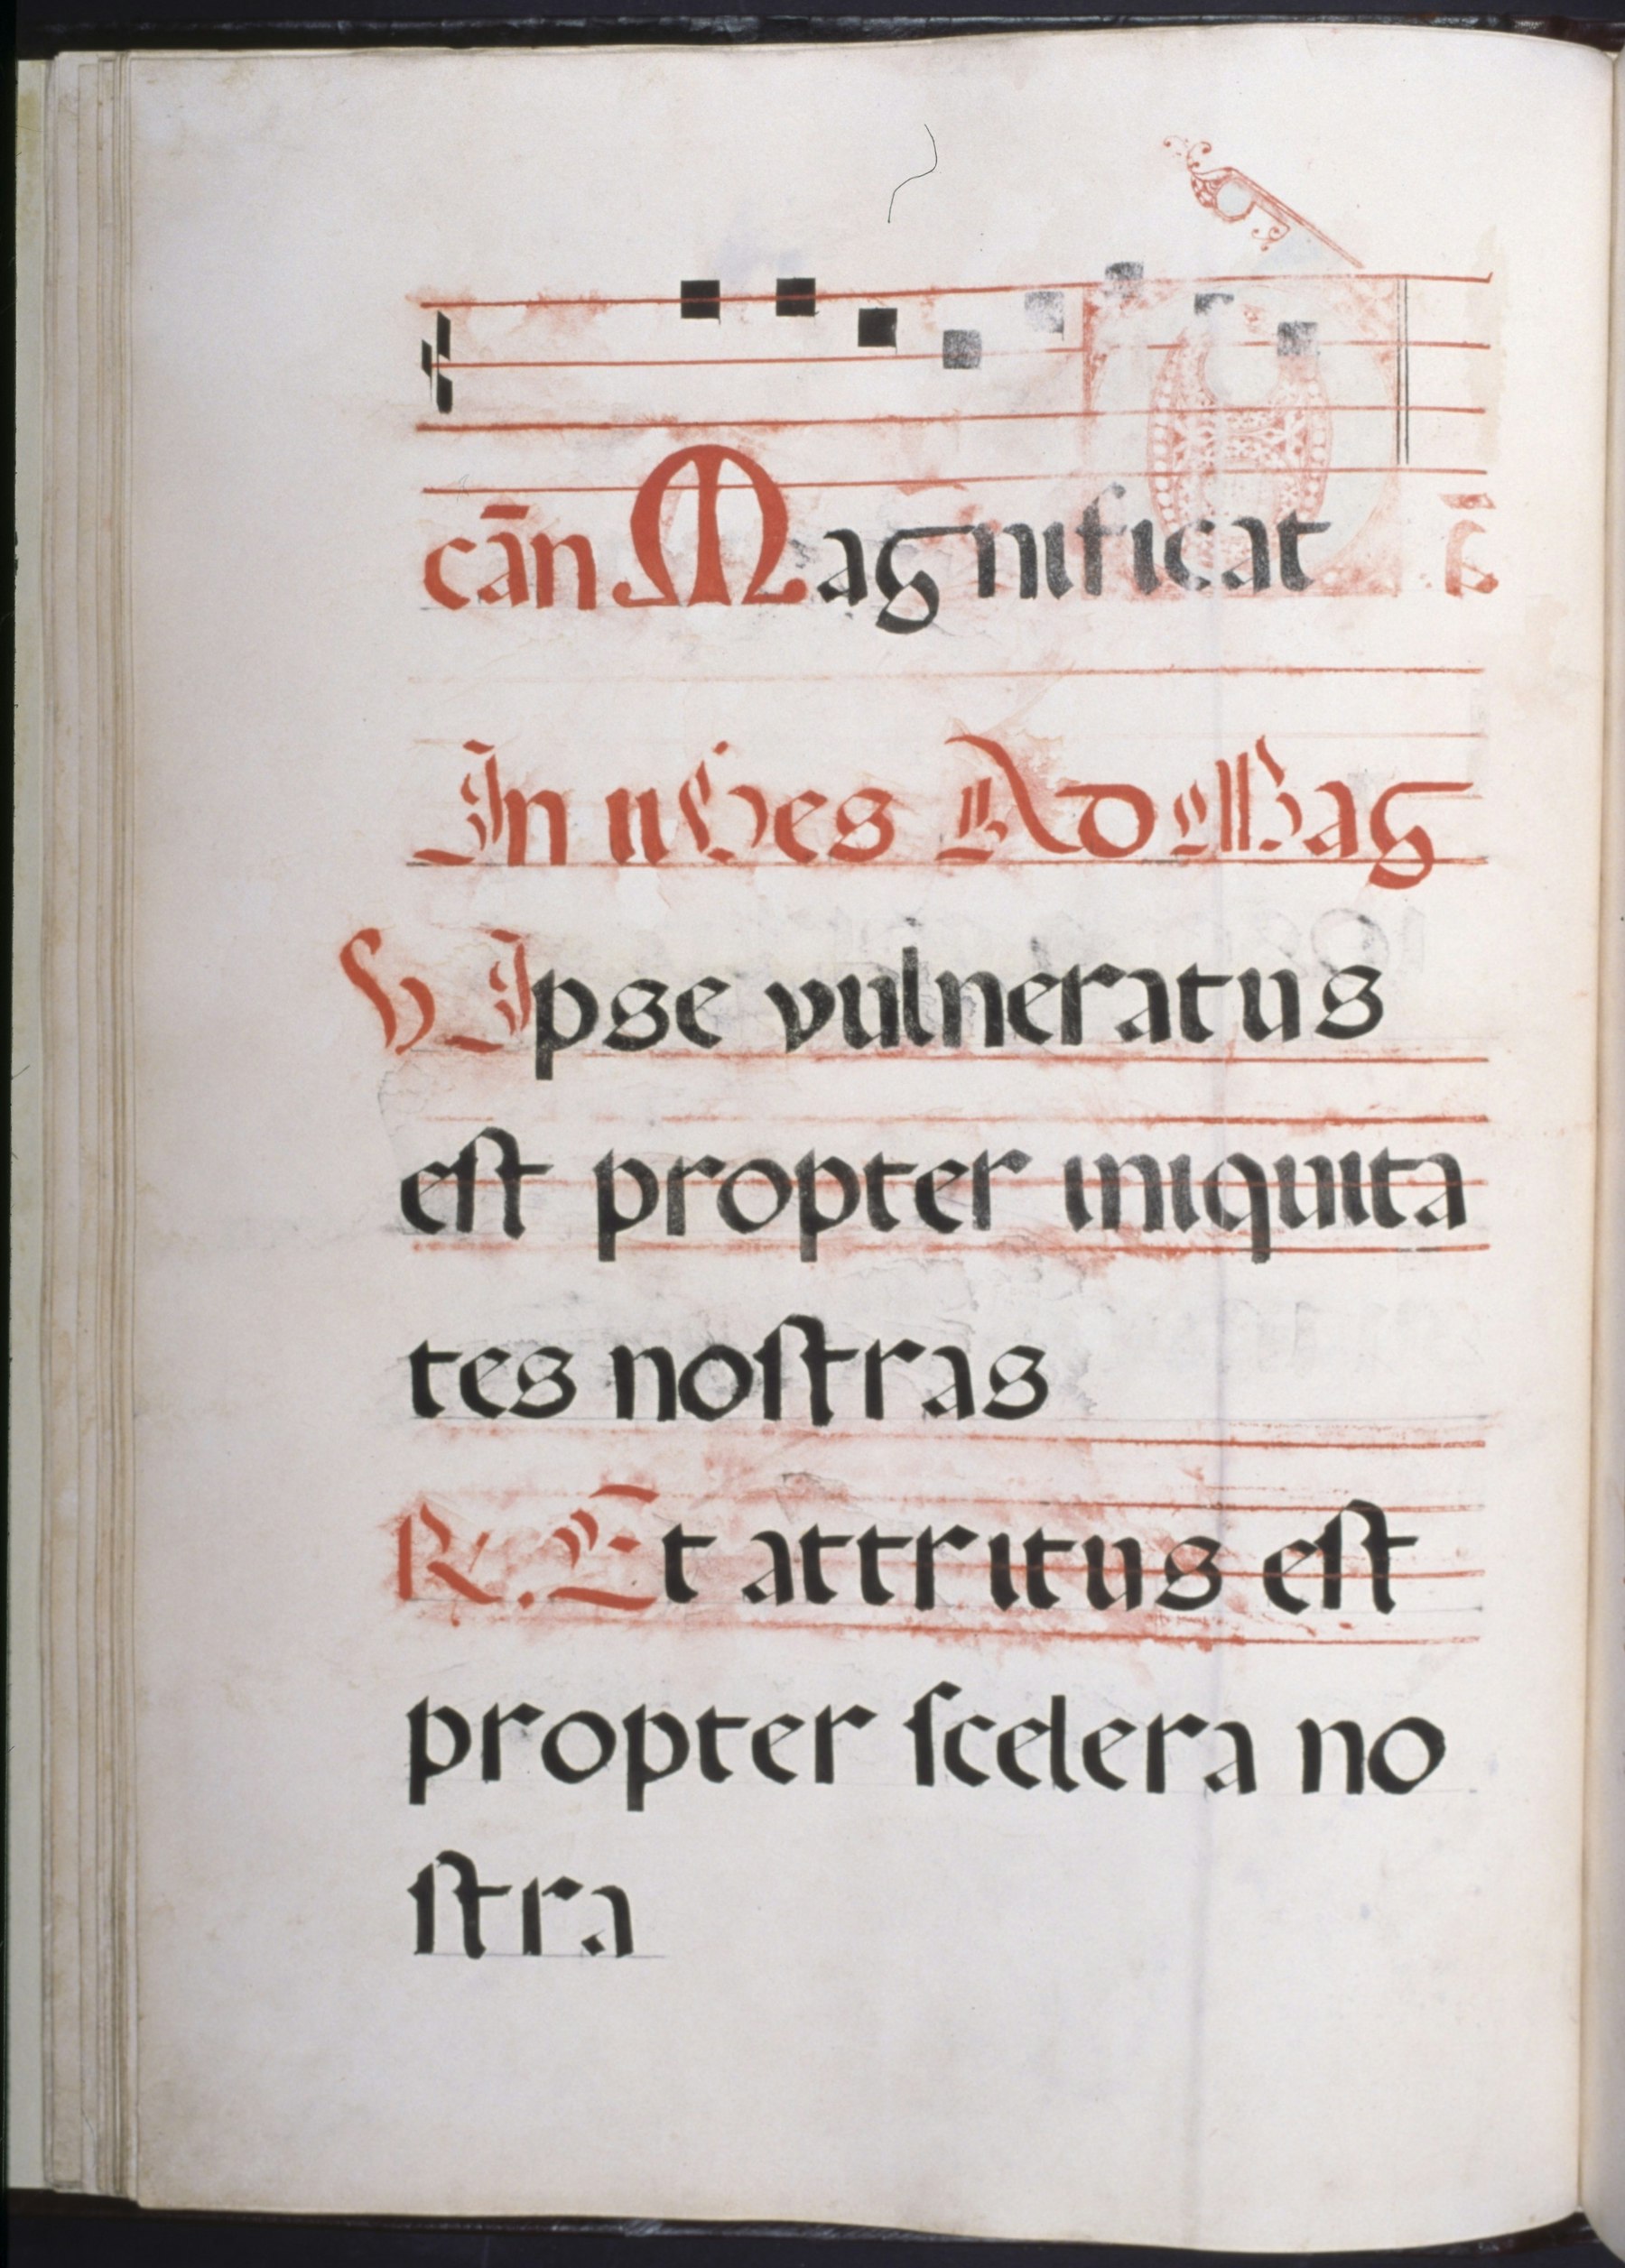 cān Magnificat ā
In ii Ves Ad Mag
V Ipse vulneratus
eſt propter iniquita
tes noſtras
R. Et attritus eſt
propter ſcelera no
ſtra